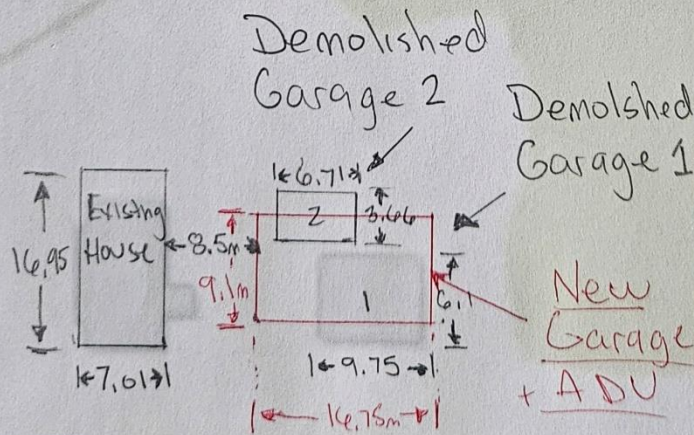 Demolished
Garage 2
Demolshed
Garage 1
|← 6.71 →|
Existing
House
16.95
← 8.5m →
2
3.66
9.1m
1
6.1
New
Garage
+ ADU
|← 9.75 →|
|← 7.01 →|
|← 16.75m →|